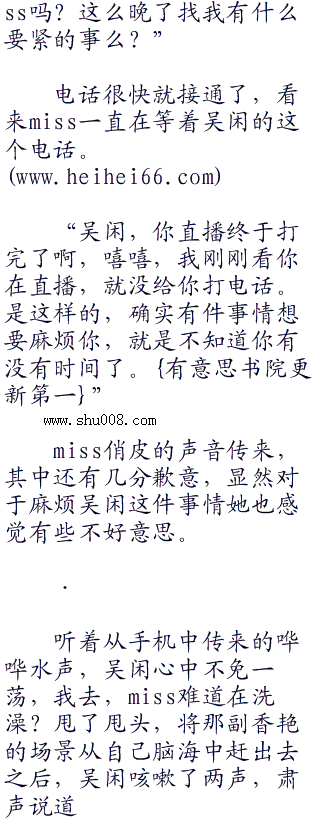 ss吗？这么晚了找我有什么
要紧的事么？”
电话很快就接通了，看
来miss一直在等着吴闲的这
个电话。
(www.heihei66.com)
“吴闲，你直播终于打
完了啊，嘻嘻，我刚刚看你
在直播，就没给你打电话。
是这样的，确实有件事情想
要麻烦你，就是不知道你有
没有时间了。{有意思书院更
新第一}”
www.shu008.com
miss俏皮的声音传来，
其中还有几分歉意，显然对
于麻烦吴闲这件事情她也感
觉有些不好意思。
．
听着从手机中传来的哗
哗水声，吴闲心中不免一
荡，我去，miss难道在洗
澡？甩了甩头，将那副香艳
的场景从自己脑海中赶出去
之后，吴闲咳嗽了两声，肃
声说道